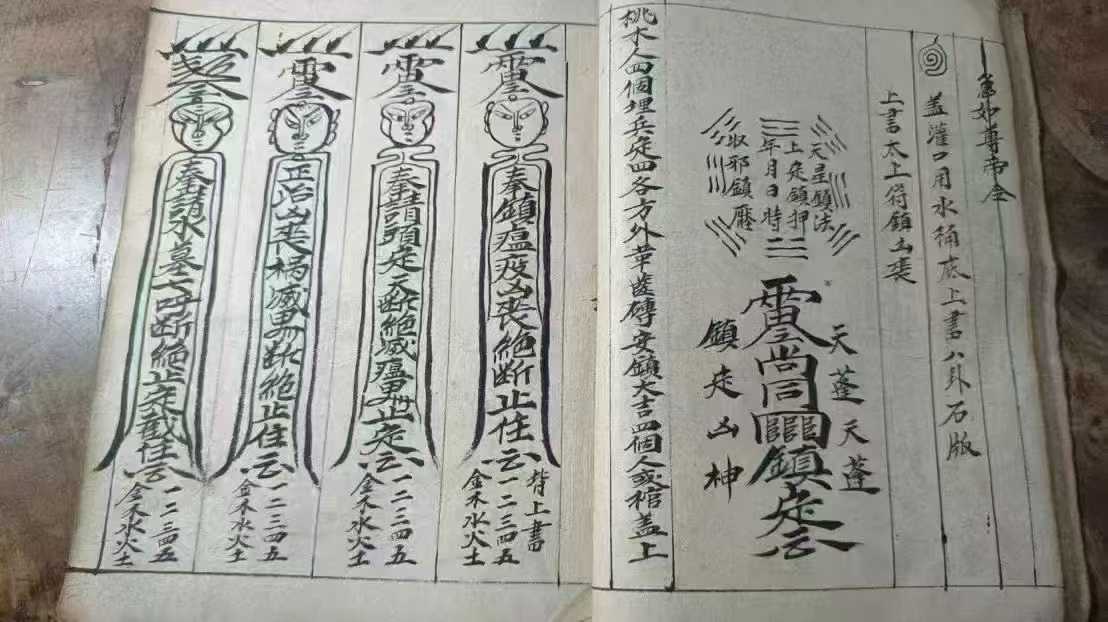 尊帝令
盖灌口用水桶底上書八卦石版
上書太上符鎮凶喪
天星鎮法
上定鎮押
年月日時
收邪鎮壓
天蓬天蓬
尚同
鎮定
鎮定凶神
桃木人四個埋兵定四各方外革蓝磚安鎮大吉四個人或棺盖上
奉鎮瘟疫凶喪絶断止住
背上書
一二三四五
金木水火土
奉請頭定天断絶滅瘟止定
一二三四五
金木水火土
正治凶喪禍滅断絶止住
一二三四五
金木水火土
奉請永墓七呼断絶止定截住
一二三四五
金木水火土